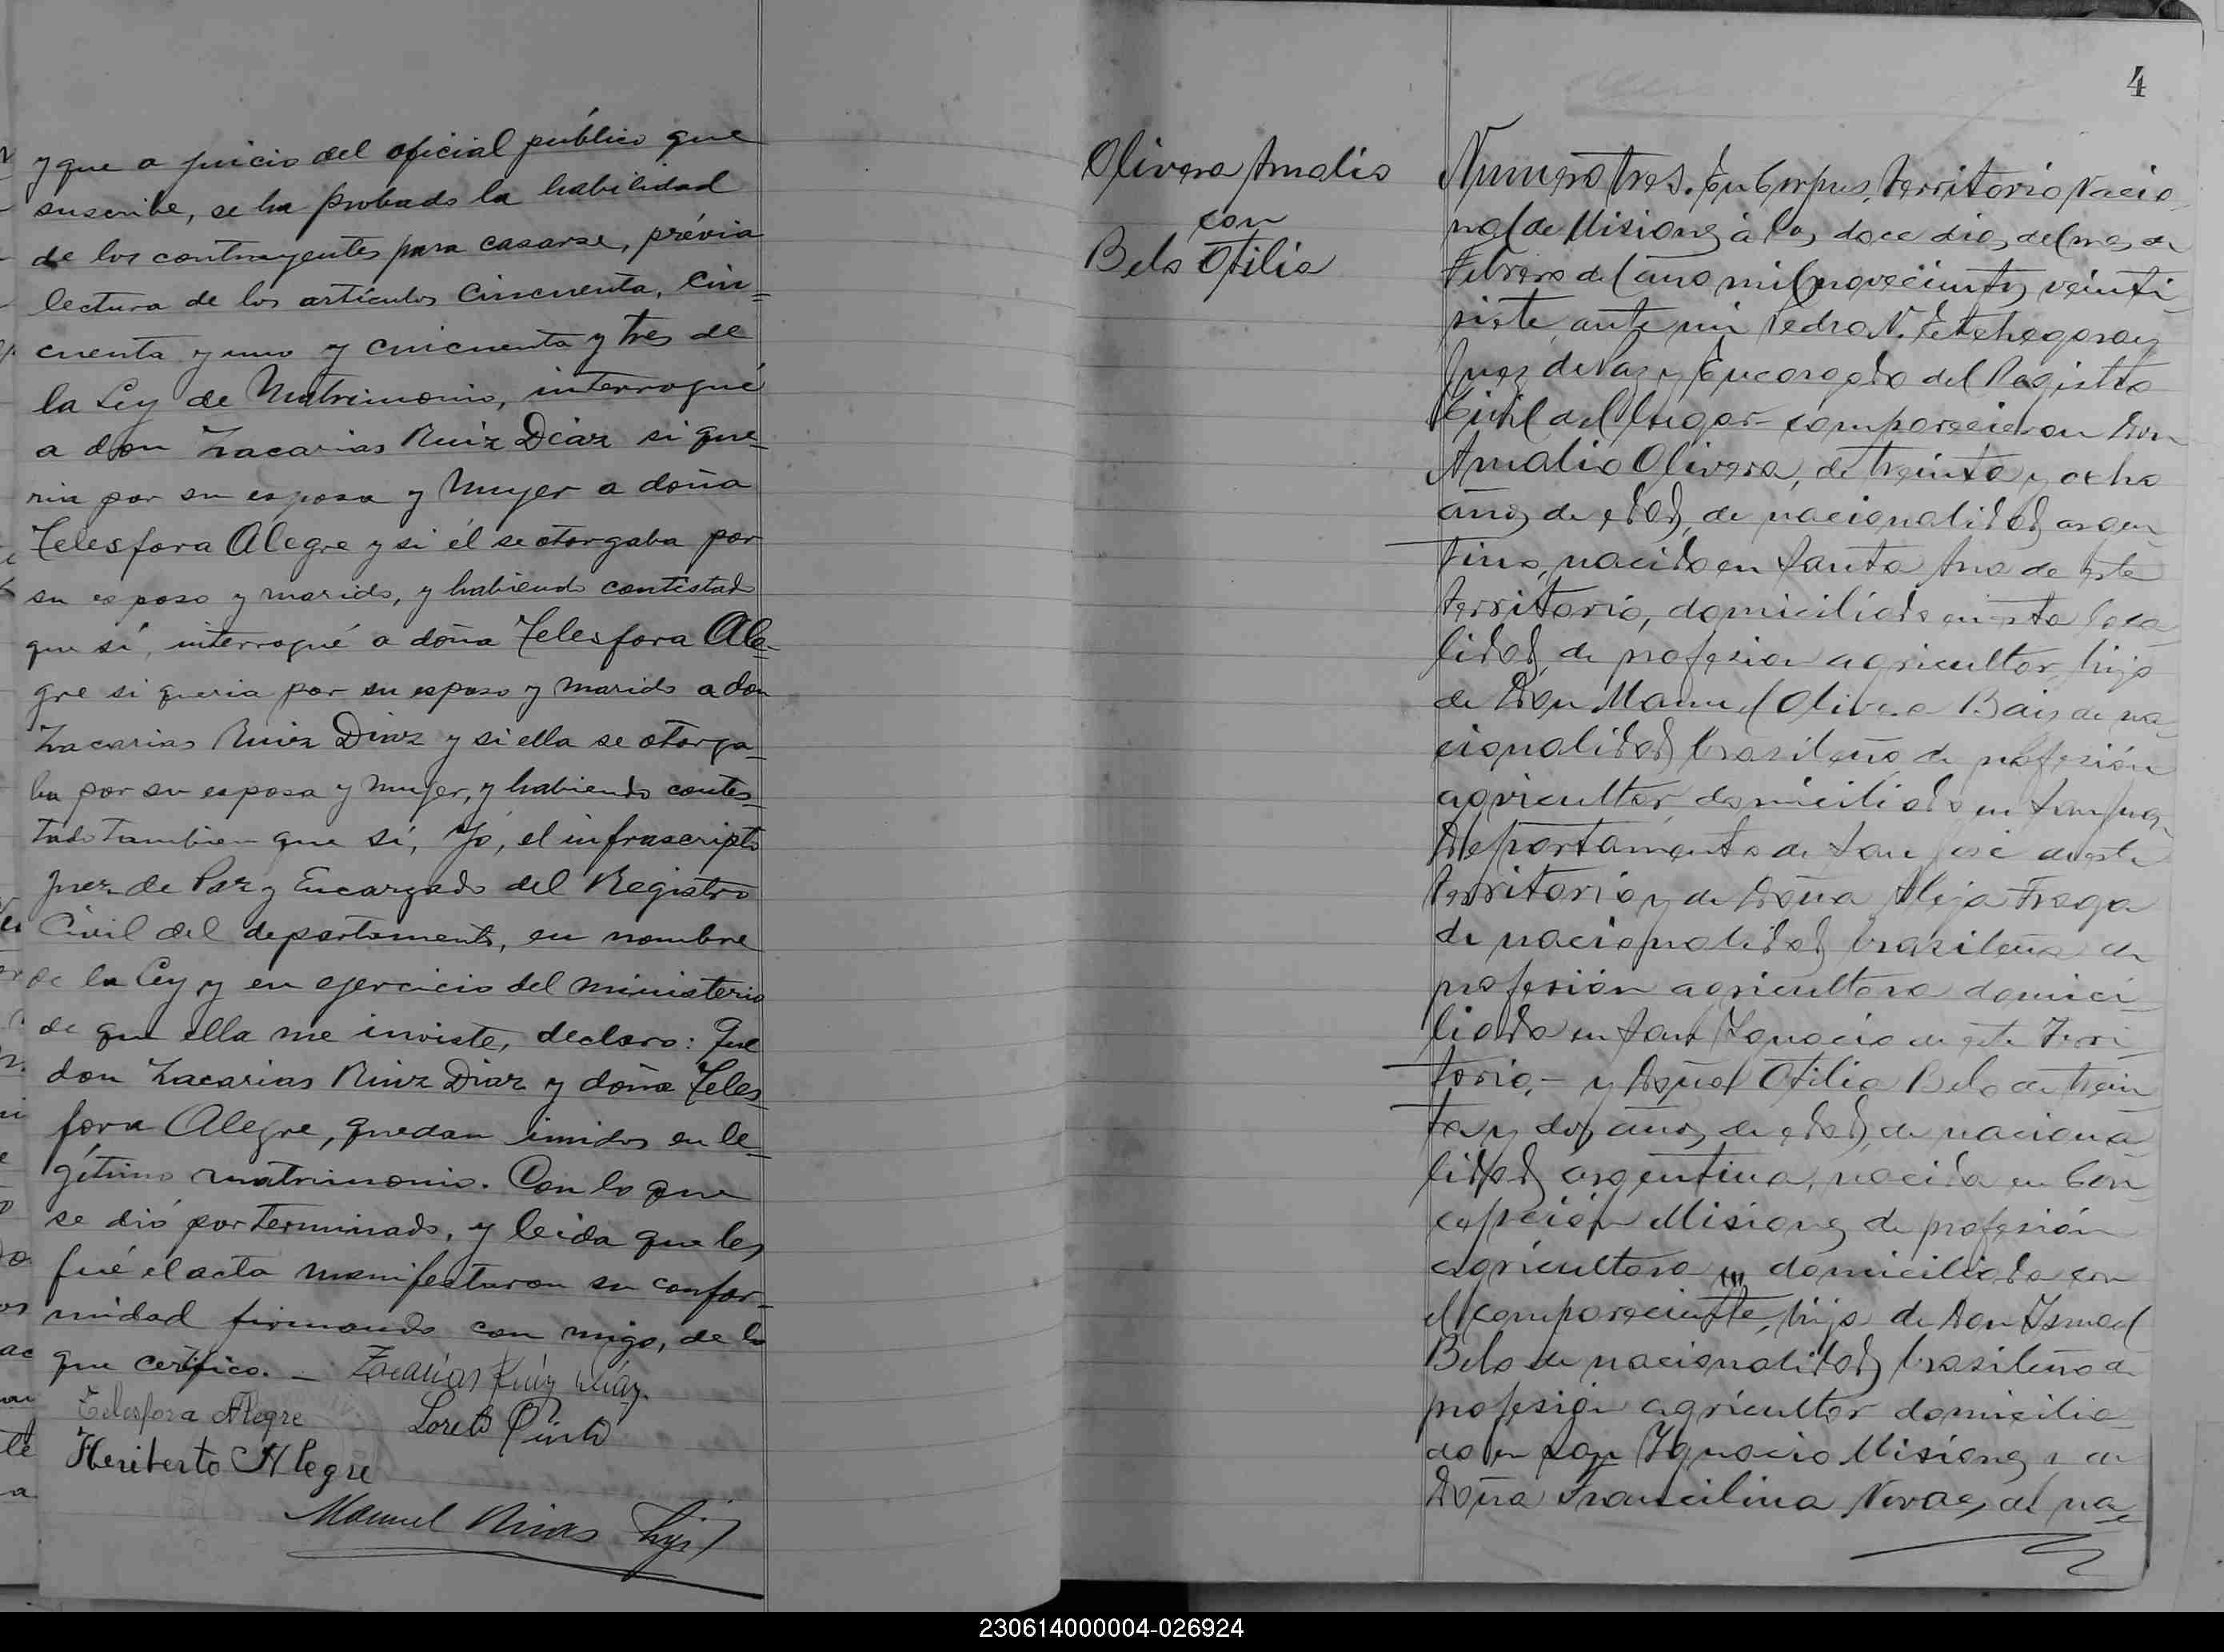 y que a juicio del oficial público que
suscribe, se ha probado la habilidad
de los contrayentes para casarse, prévia
lectura de los artículos cincuenta, cin=
cuenta y uno y cincuenta y tres de
la Ley de Matrimonio, interrogué
a don Zacarias Ruiz Diaz si que=
ria por su esposa y mujer a doña
Telesfora Alegre y si él se otorgaba por
su esposo y marido, y habiendo contestado
que sí, interrogué a doña Telesfora Ale=
gre si queria por su esposo y marido a don
Zacarias Ruiz Diaz y si ella se otorga=
ba por su esposa y mujer, y habiendo contes=
tado tambien que sí, Yo, el infrascripto
Juez de Paz y Encargado del Registro
Civil del departamento, en nombre
de la Ley y en ejercicio del ministerio
de que ella me inviste, declaro: Que
don Zacarias Ruiz Diaz y doña Teles=
fora Alegre, quedan unidos en le=
gítimo matrimonio. Con lo que
se dió por terminado, y leida que les
fué el acta manifestaron su confor=
midad firmando con migo, de lo
que certifico. _ Zacarías Ruíz Díaz.
Telesfora Alegre Loreto Pinto
Heriberto Alegre
Manuel Rivas hijo
4
Olivera Amalio
con
Belo Otilia
Numero tres. En Corpus, territorio Nacio
nal de Misiones à los doce dias del mes de
Febrero del año mil novecientos veinti
siete, ante mi Pedro N. Etchegaray
Juez de Paz y Encargado del Registro
Civil del lugar comparecieron Don
Amalio Olivera, de treinta y ocho
años de edad, de nacionalidad argen
tino, nacido en Santa Ana de este
territorio, domiciliado en esta loca
lidad, de profesion agricultor, hijo
de Don Manuel Olivera Bais de na
cionalidad brasileño de profesión
agricultor, domiciliado en San Juan
Departamento de San José de este
territorio y de Doña Fraga
de nacionalidad brasileña de
profesión agricultora domici
liada en San Ignacio de este Terri
torio,- y Doña Otilia Belo de trein
ta y dos años de edad, de naciona
lidad argentina, nacida en Con
cepción Misiones de profesión
agricultora domiciliada con
el compareciente, hija de Don Ismael
Belo de nacionalidad brasileño de
profesión agricultor domicilia
do en San Ignacio Misiones y de
Doña Francilina de na=
230614000004-026924